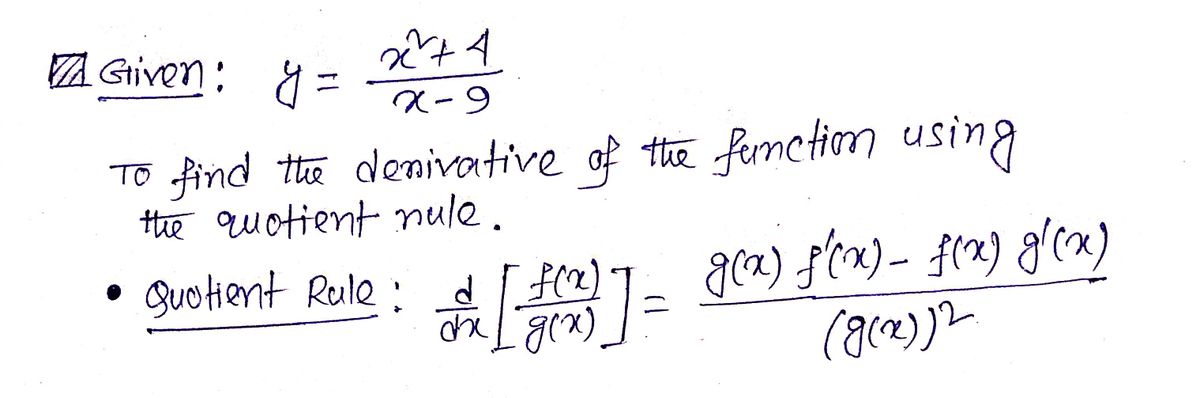 Given: y = (x²+4)/(x-9)
To find the derivative of the function using
the quotient rule.
• Quotient Rule: d/dx [f(x)/g(x)] = (g(x) f'(x) - f(x) g'(x))/(g(x))²